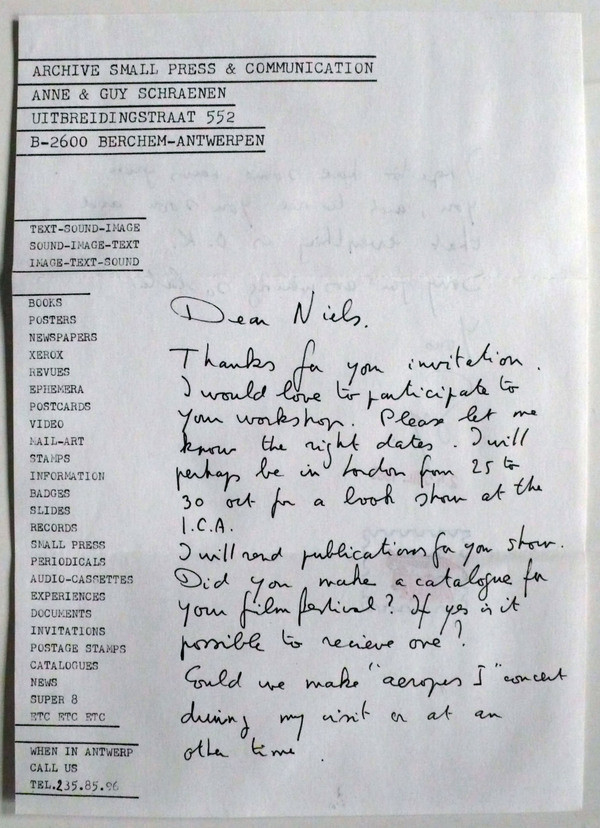 ARCHIVE SMALL PRESS & COMMUNICATION
ANNE & GUY SCHRAENEN
UITBREIDINGSTRAAT 552
B-2600 BERCHEM-ANTWERPEN
TEXT-SOUND-IMAGE
SOUND-IMAGE-TEXT
IMAGE-TEXT-SOUND
BOOKS
POSTERS
NEWSPAPERS
XEROX
REVUES
EPHEMERA
POSTCARDS
VIDEO
MAIL-ART
STAMPS
INFORMATION
BADGES
SLIDES
RECORDS
SMALL PRESS
PERIODICALS
AUDIO-CASSETTES
EXPERIENCES
DOCUMENTS
INVITATIONS
POSTAGE STAMPS
CATALOGUES
NEWS
SUPER 8
ETC ETC ETC
WHEN IN ANTWERP
CALL US
TEL.235.85.96
Dear Niels.
Thanks for your invitation.
I would love to participate to
your workshop. Please let me
know the right dates. I will
perhaps be in London from 25 to
30 oct for a book show at the
I.C.A.
I will send publications for your show.
Did you make a catalogue for
your film festival? If yes is it
possible to recieve one?
Could we make "aeropus I" concert
during my visit or at an
other time.